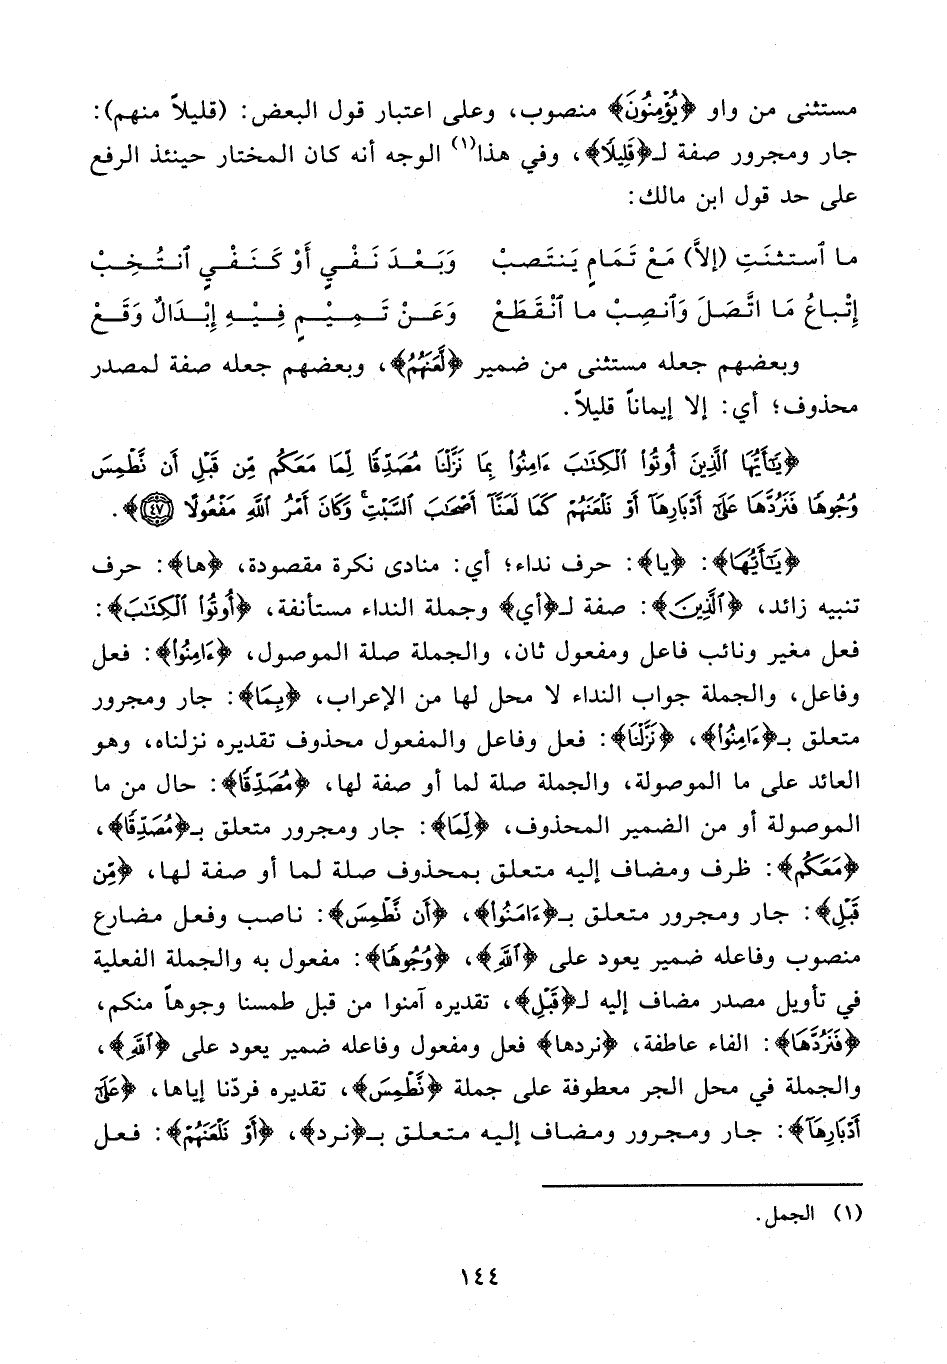 مستثنى من واو ﴿يُؤْمِنُونَ﴾ منصوب، وعلى اعتبار قول البعض: (قليلاً منهم):
جار ومجرور صفة لـ﴿قَلِيلًا﴾، وفي هذا(١) الوجه أنه كان المختار حينئذ الرفع
على حد قول ابن مالك:
ما ٱستثنَتِ (إلاَّ) مَعْ تَمَامٍ يَنتَصِبْ وَبَعْدَ نَفْيٍ أَوْ كَنَفْيٍ ٱنتُخِبْ
إتْباعُ مَا اتَّصَلَ وَٱنصِبْ ما ٱنْقَطَعْ وَعَنْ تَمِيْمٍ فِيْهِ إِبْدَالٌ وَقَعْ
وبعضهم جعله مستثنى من ضمير ﴿لَّعَنَهُمُ﴾، وبعضهم جعله صفة لمصدر
محذوف؛ أي: إلا إيماناً قليلاً.
﴿يَٰٓأَيُّهَا ٱلَّذِينَ أُوتُوا۟ ٱلْكِتَٰبَ ءَامِنُوا۟ بِمَا نَزَّلْنَا مُصَدِّقًا لِّمَا مَعَكُم مِّن قَبْلِ أَن نَّطْمِسَ
وُجُوهًا فَنَرُدَّهَا عَلَىٰٓ أَدْبَارِهَآ أَوْ نَلْعَنَهُمْ كَمَا لَعَنَّآ أَصْحَٰبَ ٱلسَّبْتِ ۚ وَكَانَ أَمْرُ ٱللَّهِ مَفْعُولًا ٤٧﴾.
﴿يَٰٓأَيُّهَا﴾: ﴿يا﴾: حرف نداء؛ أي: منادى نكرة مقصودة، ﴿ها﴾: حرف
تنبيه زائد، ﴿ٱلَّذِينَ﴾: صفة لـ﴿أي﴾ وجملة النداء مستأنفة، ﴿أُوتُوا۟ ٱلْكِتَٰبَ﴾:
فعل مغير ونائب فاعل ومفعول ثان، والجملة صلة الموصول، ﴿ءَامِنُوا۟﴾: فعل
وفاعل، والجملة جواب النداء لا محل لها من الإعراب، ﴿بِمَا﴾: جار ومجرور
متعلق بـ﴿ءَامِنُوا۟﴾، ﴿نَزَّلْنَا﴾: فعل وفاعل والمفعول محذوف تقديره نزلناه، وهو
العائد على ما الموصولة، والجملة صلة لما أو صفة لها، ﴿مُصَدِّقًا﴾: حال من ما
الموصولة أو من الضمير المحذوف، ﴿لِّمَا﴾: جار ومجرور متعلق بـ﴿مُصَدِّقًا﴾،
﴿مَعَكُم﴾: ظرف ومضاف إليه متعلق بمحذوف صلة لما أو صفة لها، ﴿مِّن
قَبْلِ﴾: جار ومجرور متعلق بـ﴿ءَامَنُوا۟﴾، ﴿أَن نَّطْمِسَ﴾: ناصب وفعل مضارع
منصوب وفاعله ضمير يعود على ﴿ٱللَّهِ﴾، ﴿وُجُوهًا﴾: مفعول به والجملة الفعلية
في تأويل مصدر مضاف إليه لـ﴿قَبْلِ﴾، تقديره آمنوا من قبل طمسنا وجوهاً منكم،
﴿فَنَرُدَّهَا﴾: الفاء عاطفة، ﴿نردها﴾ فعل ومفعول وفاعله ضمير يعود على ﴿ٱللَّهِ﴾،
والجملة في محل الجر معطوفة على جملة ﴿نَّطْمِسَ﴾، تقديره فردّنا إياها، ﴿عَلَىٰٓ
أَدْبَارِهَآ﴾: جار ومجرور ومضاف إليه متعلق بـ﴿نرد﴾، ﴿أَوْ نَلْعَنَهُمْ﴾: فعل
(١) الجمل.
١٤٤